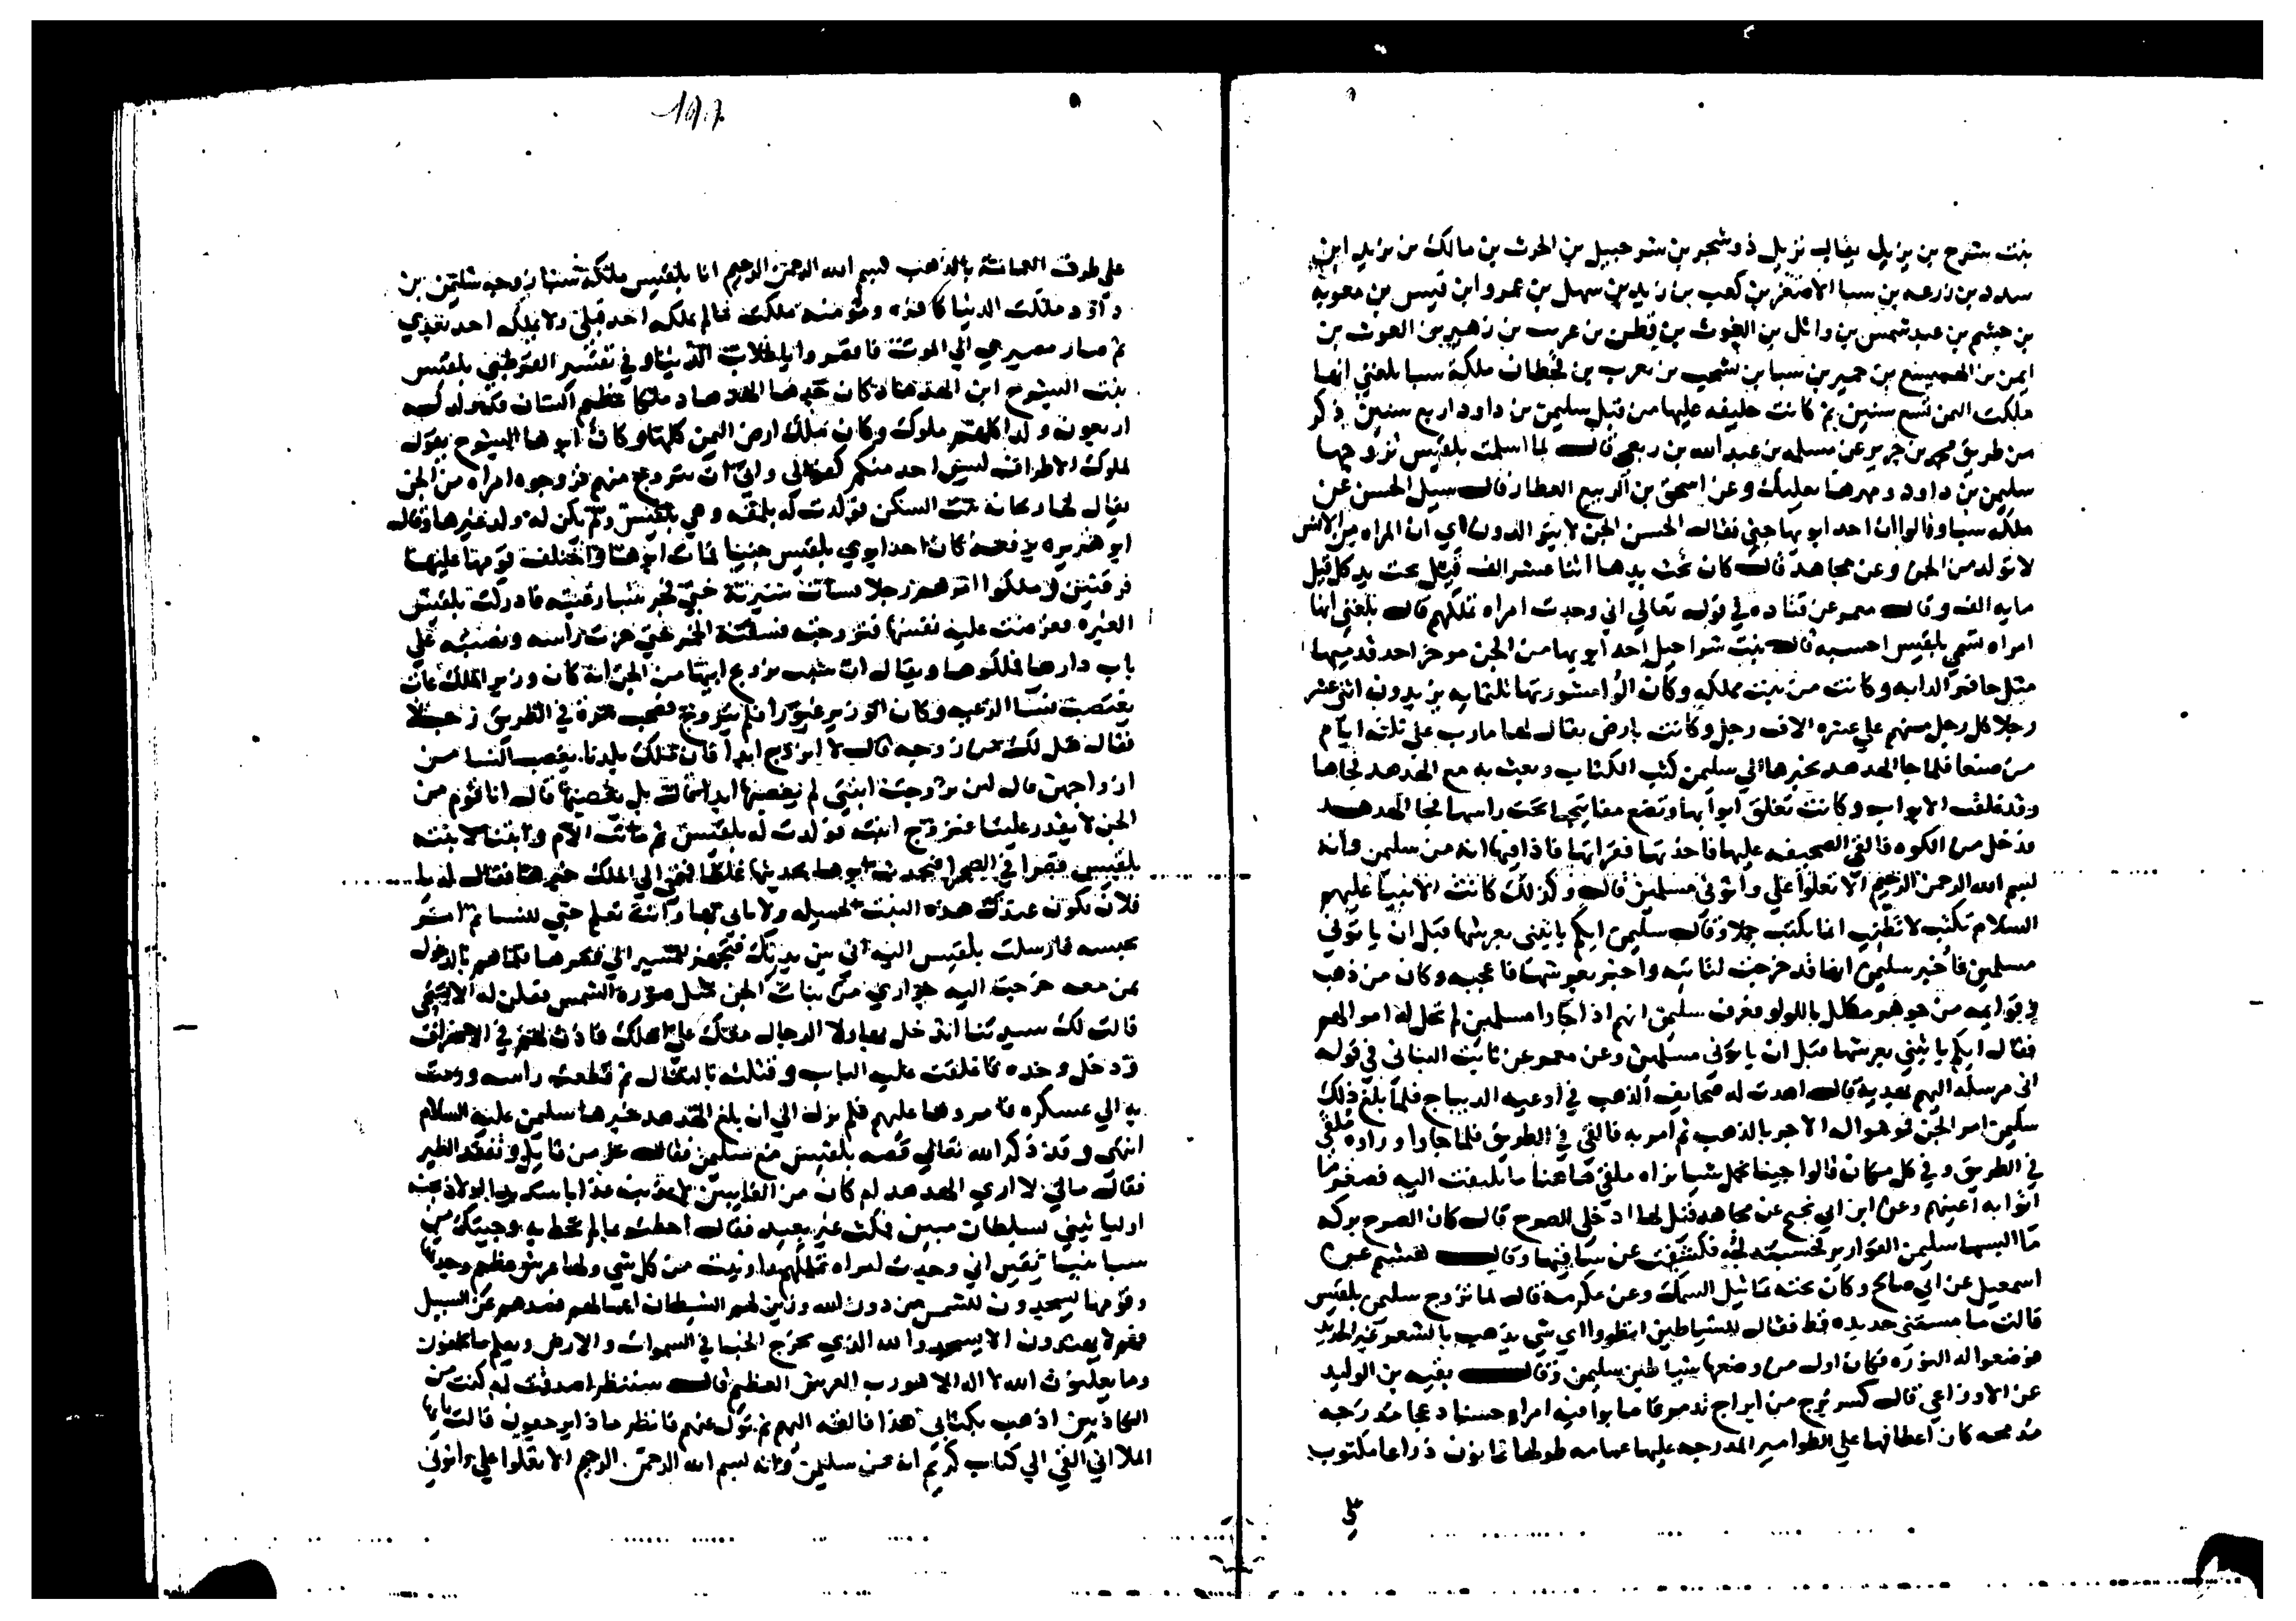 بنت شرح بن يزيل يقال نزيل ذو شجر بن شرحبيل بن الحرث بن مالك بن يزيد ابن
سدد بن زرعه بن سبا الاصغر بن كعب بن زيد بن سهل بن عمرو ابن قيس بن معويه
بن جشم بن عبد شمس بن وائل بن الغوث بن قطن بن عريب بن زهير بن الغوث بن
ايمن بن الهميسع بن حمير بن سبا بن يشجب بن يعرب بن قحطان ملكة سبا بلغني انها
ملكت اليمن تسع سنين ثم كانت خليفه عليها من قبل سليمن بن داود اربع سنين ذكر
من طريق محمد بن جرير عن مسلمه بن عبد الله بن ربعي قال لما اسلمت بلقيس تزوجها
سليمن بن داود ومهرها بعلبك وعن اسحق بن الربيع العطار قال سيل الحسن عن
ملكه سبا وقالوا ان احد ابويها جني فقال الحسن الجن لا يتوالدون اي ان المراه من الانس
لا تولد من الجن وعن مجاهد قال كان تحت يدها اثنا عشر الف قيل تحت يد كل قيل
مايه الف وقال معمر عن قتاده في قوله تعالي اني وجدت امراه تملكهم قال بلغني انها
امراه تسمي بلقيس احسبه قال بنت شراحيل احد ابويها من الجن موخر احد قدميها
مثل حافر الدابه وكانت من بيت مملكه وكان الوا مشورتها ثلثمايه يزيدون اثني عشر
رجلا كل رجل منهم علي عشره الاف رجل وكانت بارض يقال لها مارب علي ثلثه ايام
من صنعا فلما جا الهدهد بخبرها الي سليمن كتب الكتاب وبعث به مع الهدهد فجاها
وقد غلقت الابواب وكانت تغلق ابوابها وتضع مفاتيحها تحت راسها فجا الهدهد
فدخل من الكوه فالقي الصحيفه عليها فاخذتها فقراتها فاذا فيها انه من سليمن وانه
بسم الله الرحمن الرحيم الا تعلوا علي واتوني مسلمين قال وكذلك كانت الانبيا عليهم
السلام تكتب لا تطنب انما تكتب جملا وقال سليمن ايكم ياتيني بعرشها قبل ان ياتوني
مسلمين فاخبر سليمن انها قد خرجت لتاتيه واخبر بعرشها فاعجبه وكان من ذهب
وقوايمه من جوهر مكلل باللولو فعرف سليمن انهم اذا جاوا مسلمين لم تحل له اموالهم
فقال ايكم ياتيني بعرشها قبل ان ياتوني مسلمين وعن معمر عن ثابت البناني في قوله
اني مرسله اليهم بهدية قال اهدت له صحايف الذهب في اوعيه الديباج فلما بلغ ذلك
سليمن امر الجن فموهوا له الاجر بالذهب ثم امر به فالقي في الطريق فلما جاوا وراوه ملقي
في الطريق وفي كل مكان قالوا جينا نحمل شيا نراه ملقي هاهنا ما يلتفت اليه فصغر ما
اتوا به اعينهم وعن ابن ابي نجيح عن مجاهد قيل لها ادخلي الصرح قال كان الصرح بركه
ما البسها سليمن القوارير فحسبته لجه فكشفت عن ساقيها وقال هشيم عن
اسمعيل عن ابي صالح وكان تحته تماثيل السمك وعن عكرمه قال لما تزوج سليمن بلقيس
قالت ما مستني حديده قط فقال للشياطين انظروا اي شي يذهب بالشعر غير الحديد
فوضعوا له النوره فكان اول من وضعها شياطين سليمن وقال بقيه بن الوليد
عن الاوزاعي قال كسر برج من ابراج تدمر فاصابوا فيه امراه حسنا دعجا مدرجه
مدمجه كان اعطافها علي الطوامير المدرجه عليها عمامه طولها ثمانون ذراعا مكتوب
علي
علي طرف العمامة بالذهب بسم الله الرحمن الرحيم انا بلقيس ملكة سبا زوجه سليمن بن
داود ملكت الدنيا كافره ومومنه ملكت مالم يملكه احد قبلي ولا يملكه احد بعدي
ثم صار مصيري الي الموت فاقصروا يا طلاب الدنيا وفي تفسير القرطبي بلقيس
بنت السرح ابن الهدهاد كان جدها الهدهاد ملكا عظيم الشان وقد ولد له
اربعون ولدا كلهم ملوك وكان ملك ارض اليمن كلها وكان ابوها السرح يقول
لملوك الاطراف ليس احد منكم كفوا لي وابي ان يتزوج منهم فزوجوه امراه من الجن
يقال لها ريحانه بنت السكن فولدت له بلقمه وهي بلقيس ولم يكن له ولد غيرها وقال
ابو هريره يرفعه كان احد ابوي بلقيس جنيا فمات ابوها واختلف قومها عليها
فرقتين وملكوا امرهم رجلا سات سيرته حتي فجر بنسا رعيته فادركت بلقيس
الغيره فعرضت عليه نفسها فتزوجته فسقته الخمر حتي حزت راسه ونصبته علي
باب دارها فملكوها ويقال ان سبب تزوج ابيها من الجن انه كان وزير الملك عات
يغتصب نسا الرعيه وكان الوزير غيورا فلم يتزوج فصحب مره في الطريق رجلا
فقال هل لك من زوجه قال لا اتزوج ابدا فان ملك بلدنا يغصب النسا من
ازواجهن قال لين تزوجت ابنتي لم يغصبها ابدا قال بل يغصبها قال انا قوم من
الجن لا يقدر علينا فتزوج ابنته فولدت له بلقيس ثم ماتت الام وابتنت
بلقيس قصرا في الصحرا فتحدث ابوها بحديثها غلطا فنمي الي الملك خبرها فقال له يا
فلان تكون عندك هذه البنت الجميله ولا تاتني بها وانت تعلم حبي للنسا ثم امر
بحبسه فارسلت بلقيس اليه اني بين يديك فتجهز للمسير الي قصرها فلما هم بالدخول
بمن معه خرجت اليه جواري من بنات الجن مثل صوره الشمس فقلن له الا تستحي
قالت لك سيدتنا اتدخل بهاولا الرجال معك علي اهلك فاذن لهم في الانصراف
ودخل وحده فاغلقت عليه الباب وقتلته بالنعال ثم قطعت راسه ورمت
به الي عسكره فامروها عليهم فلم تزل الي ان بلغ الهدهد خبرها سليمن عليه السلام
انتهي وقد ذكر الله تعالي قصه بلقيس مع سليمن فقال عز من قايل وتفقد الطير
فقال مالي لا اري الهدهد ام كان من الغايبين لاعذبنه عذابا شديدا او لاذبحنه
او لياتيني بسلطان مبين فمكث غير بعيد فقال احطت بما لم تحط به وجيتك من
سبا بنبا يقين اني وجدت امراه تملكهم واوتيت من كل شي ولها عرش عظيم وجدتها
وقومها يسجدون للشمس من دون الله وزين لهم الشيطان اعمالهم فصدهم عن السبيل
فهم لا يهتدون الا يسجدوا لله الذي يخرج الخبا في السموات والارض ويعلم ما تخفون
وما يعلنون الله لا اله الا هو رب العرش العظيم قال سننظر اصدقت ام كنت من
الكاذبين اذهب بكتابي هذا فالقه اليهم ثم تول عنهم فانظر ماذا يرجعون قالت يا ايها
الملا اني القي الي كتاب كريم انه من سليمن وانه بسم الله الرحمن الرحيم الا تعلوا علي واتوني